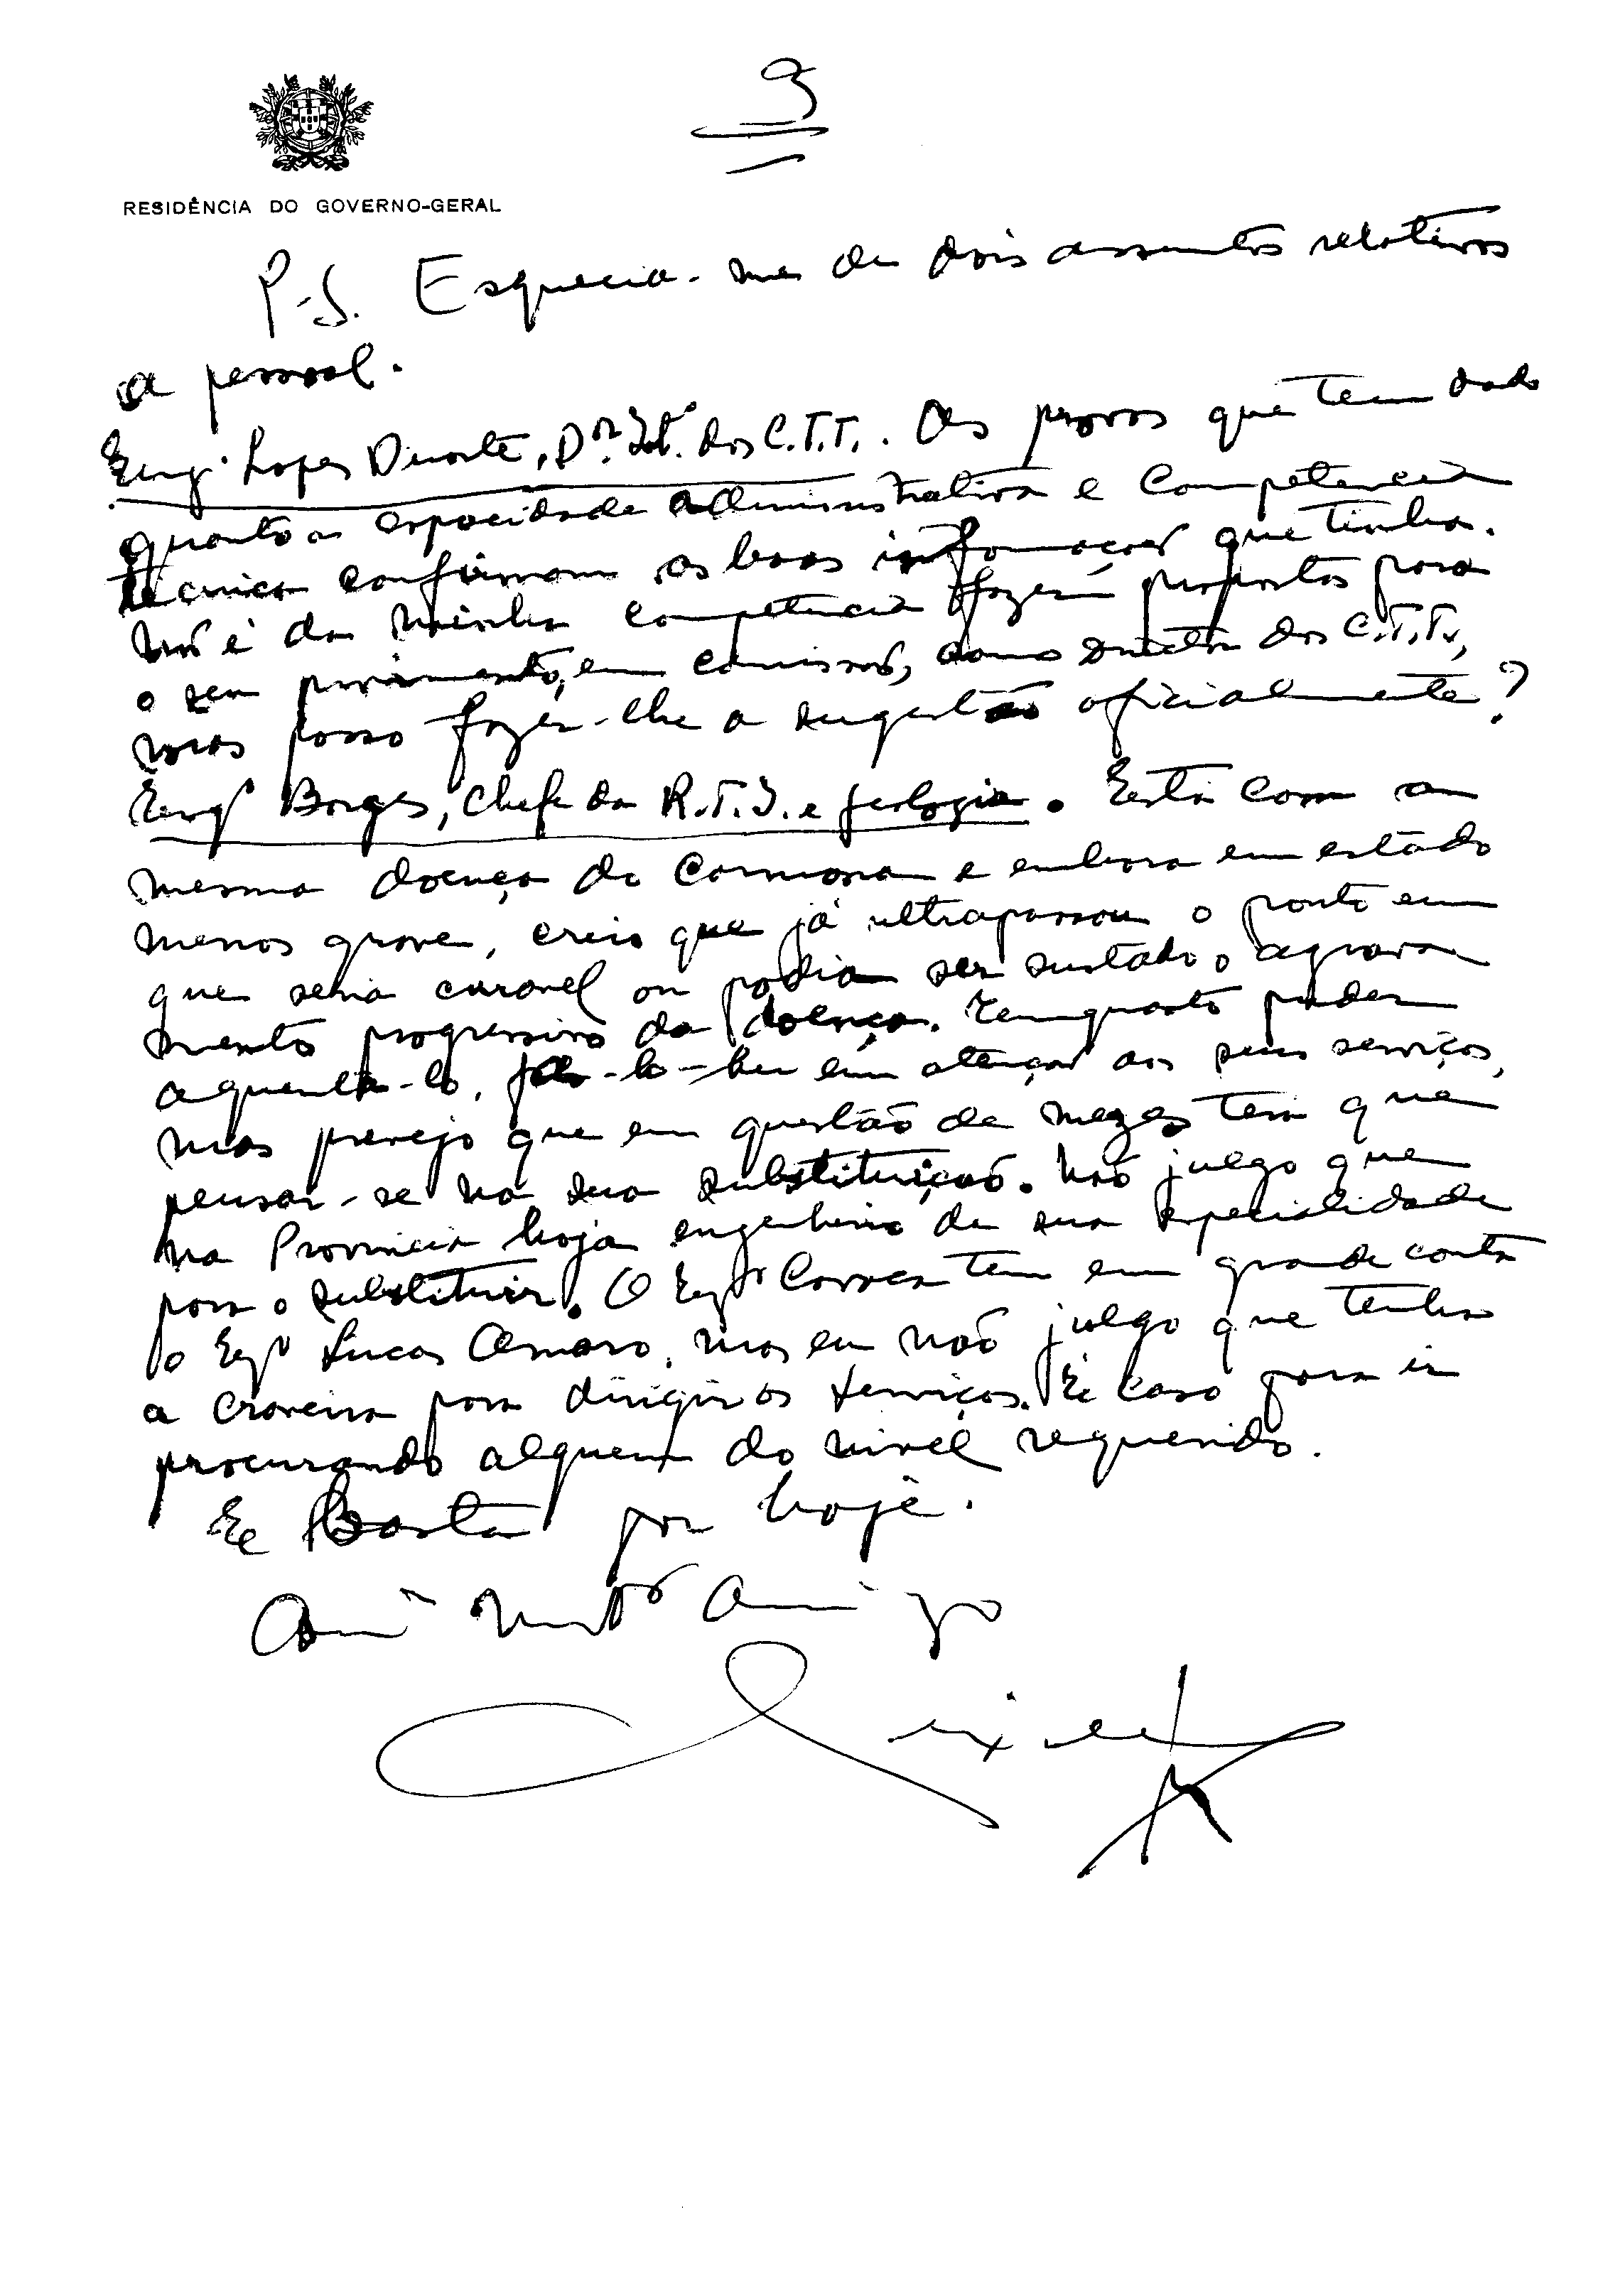 9
RESIDÊNCIA DO GOVERNO-GERAL
P.S. Esquecia-me de dois assuntos relativos
a pessoal.
Engº Lopes Duarte, Dor. Intº. dos C.T.T.. As provas que tem dado
quanto a capacidade administrativa e competencia
técnica confirmam as boas informações que tinha.
Não é da minha competencia fazer propostas para
o seu provimento, em comissão, como director dos C.T.T.,
mas posso fazer-lhe a sugestão oficialmente?
Engº Borges, Chefe da R.T.I. e geologia. Está com a
mesma doença do Carmona e embora em estado
menos grave, creio que já ultrapassou o ponto em
que seria curavel ou podia ser sustado o agrava
mento progressivo da doença. Emquanto puder
aguenta-lo, fa-lo-hei em atenção aos seus serviços,
mas prevejo que em questão de mezes tem que
pensar-se na sua substituição. Não julgo que
na Provincia haja engenheiro da sua especialidade
para o substituir. O Engº Correa tem em grande conta
o Engº Lucas Amaro, mas eu não julgo que tenha
a craveira para dirigir os serviços. É caso para ir
procurando alguem do nivel requerido.
E Basta por hoje.
Amº Muttº amigo